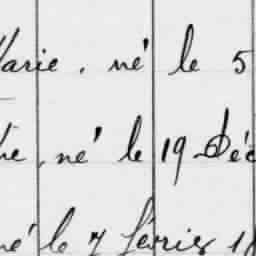 Marie, né le 5
né le 19 Déc
né le 7 février 18